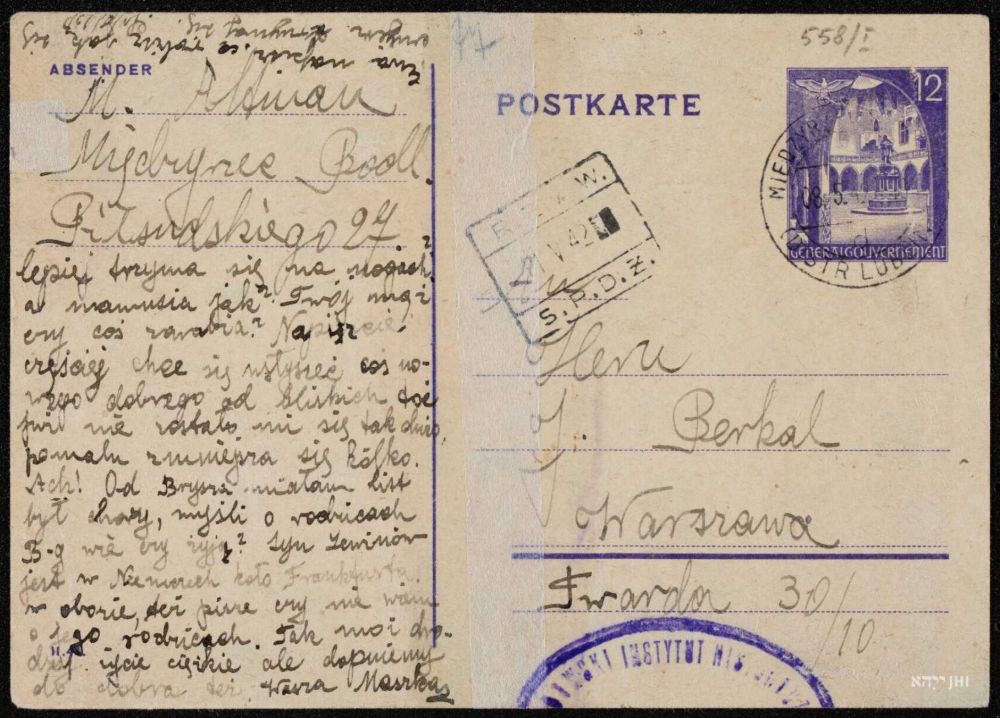 558/I
77
Ewa
ABSENDER
M. Altman
Międzyrzec Podl.
Piłsudskiego 27
lepiej trzyma się na nogach?
a mamusia jak? Twój mąż
czy coś zarabia? Napiszcie
częściej chce się usłyszeć coś no-
wego dobrego od bliskich
nie zostało mi się tak dużo,
pomału zmniejsza się kółko.
Ach! Od Brysza miałam list
był chory, myśli o rodzicach
B-g wie czy żyją? Syn Lewinów
jest w Niemczech koło Frankfurta
w obozie, też pisze czy nie wiem
o jego rodzicach. Tak moi dro-
dzy życie ciężkie ale dopniemy
do dobra też. Wasza Maszka
POSTKARTE
12
GENERALGOUVERNEMENT
MIĘDZYRZEC
08.5.4
DISTR LUBLIN
R. Z. W.
V 42
S. P. D. Ż.
Heru
J. Berkal
Warszawa
Twarda 30/10
INSTYTUT HIS
JHI ייִהאָ